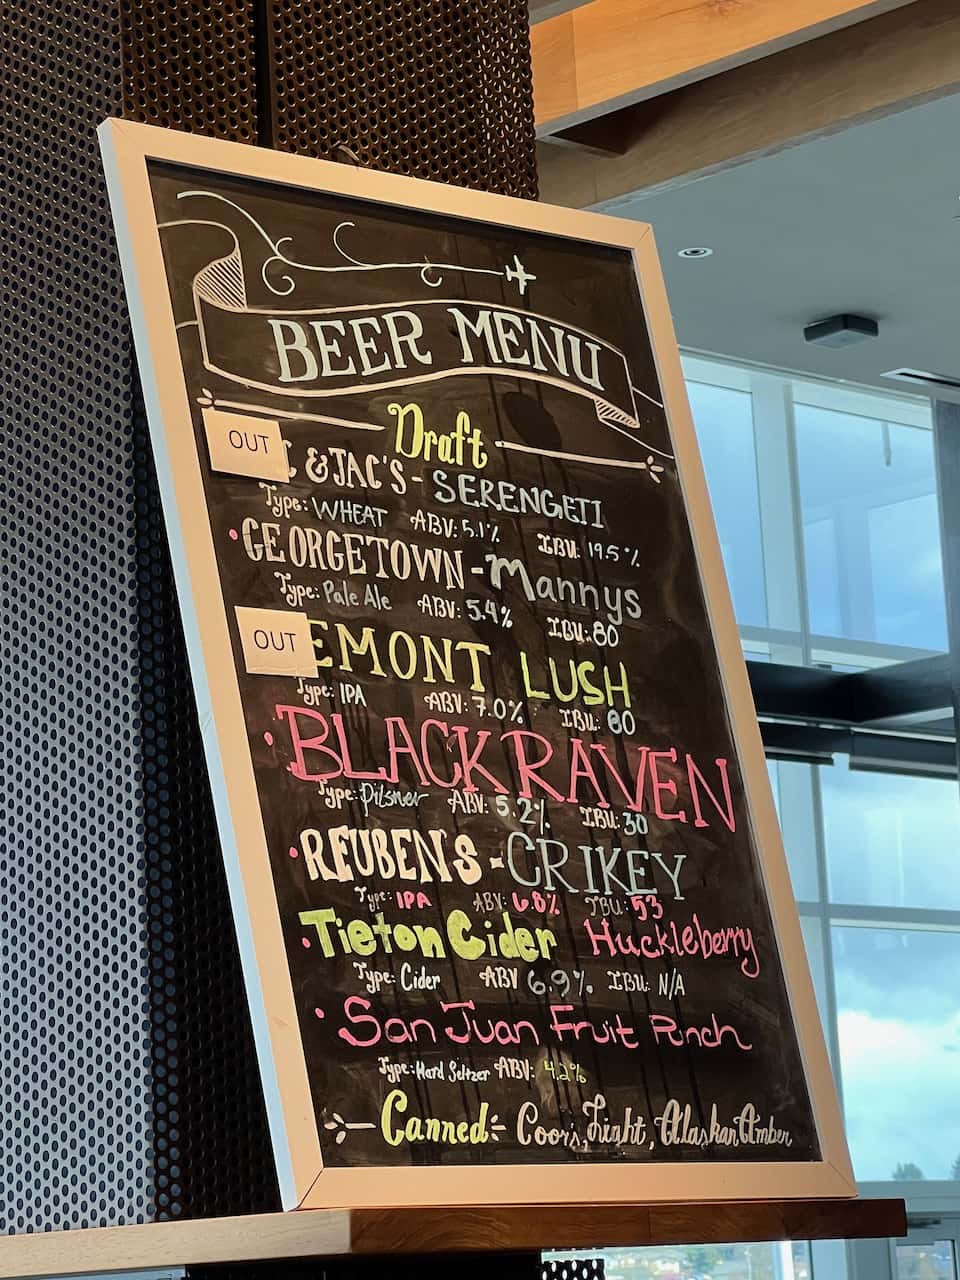 BEER MENU
Draft
OUT
& JAC'S - SERENGETI
Type: WHEAT ABV: 5.1% IBU: 19.5%
• GEORGETOWN - Mannys
Type: Pale Ale ABV: 5.4% IBU: 80
OUT
EMONT LUSH
Type: IPA ABV: 7.0% IBU: 80
• BLACK RAVEN
Type: Pilsner ABV: 5.2% IBU: 30
• REUBENS - CRIKEY
Type: IPA ABV: 6.8% IBU: 53
• Tieton Cider Huckleberry
Type: Cider ABV 6.9% IBU: N/A
• San Juan Fruit Punch
Type: Hard Seltzer ABV: 4.2%
Canned: Coors, Light, Alaskan Amber